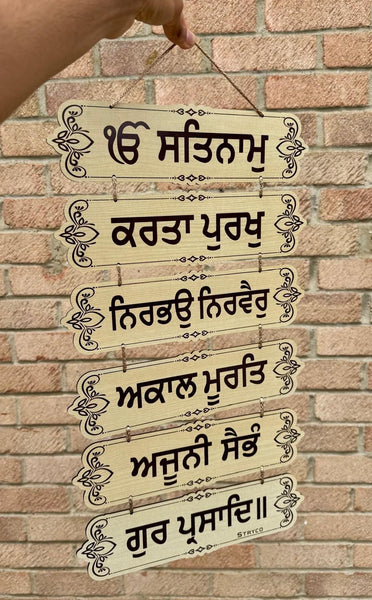 ੴ ਸਤਿਨਾਮੁ
ਕਰਤਾ ਪੁਰਖੁ
ਨਿਰਭਉ ਨਿਰਵੈਰੁ
ਅਕਾਲ ਮੂਰਤਿ
ਅਜੂਨੀ ਸੈਭੰ
ਗੁਰ ਪ੍ਰਸਾਦਿ॥
STRYCO